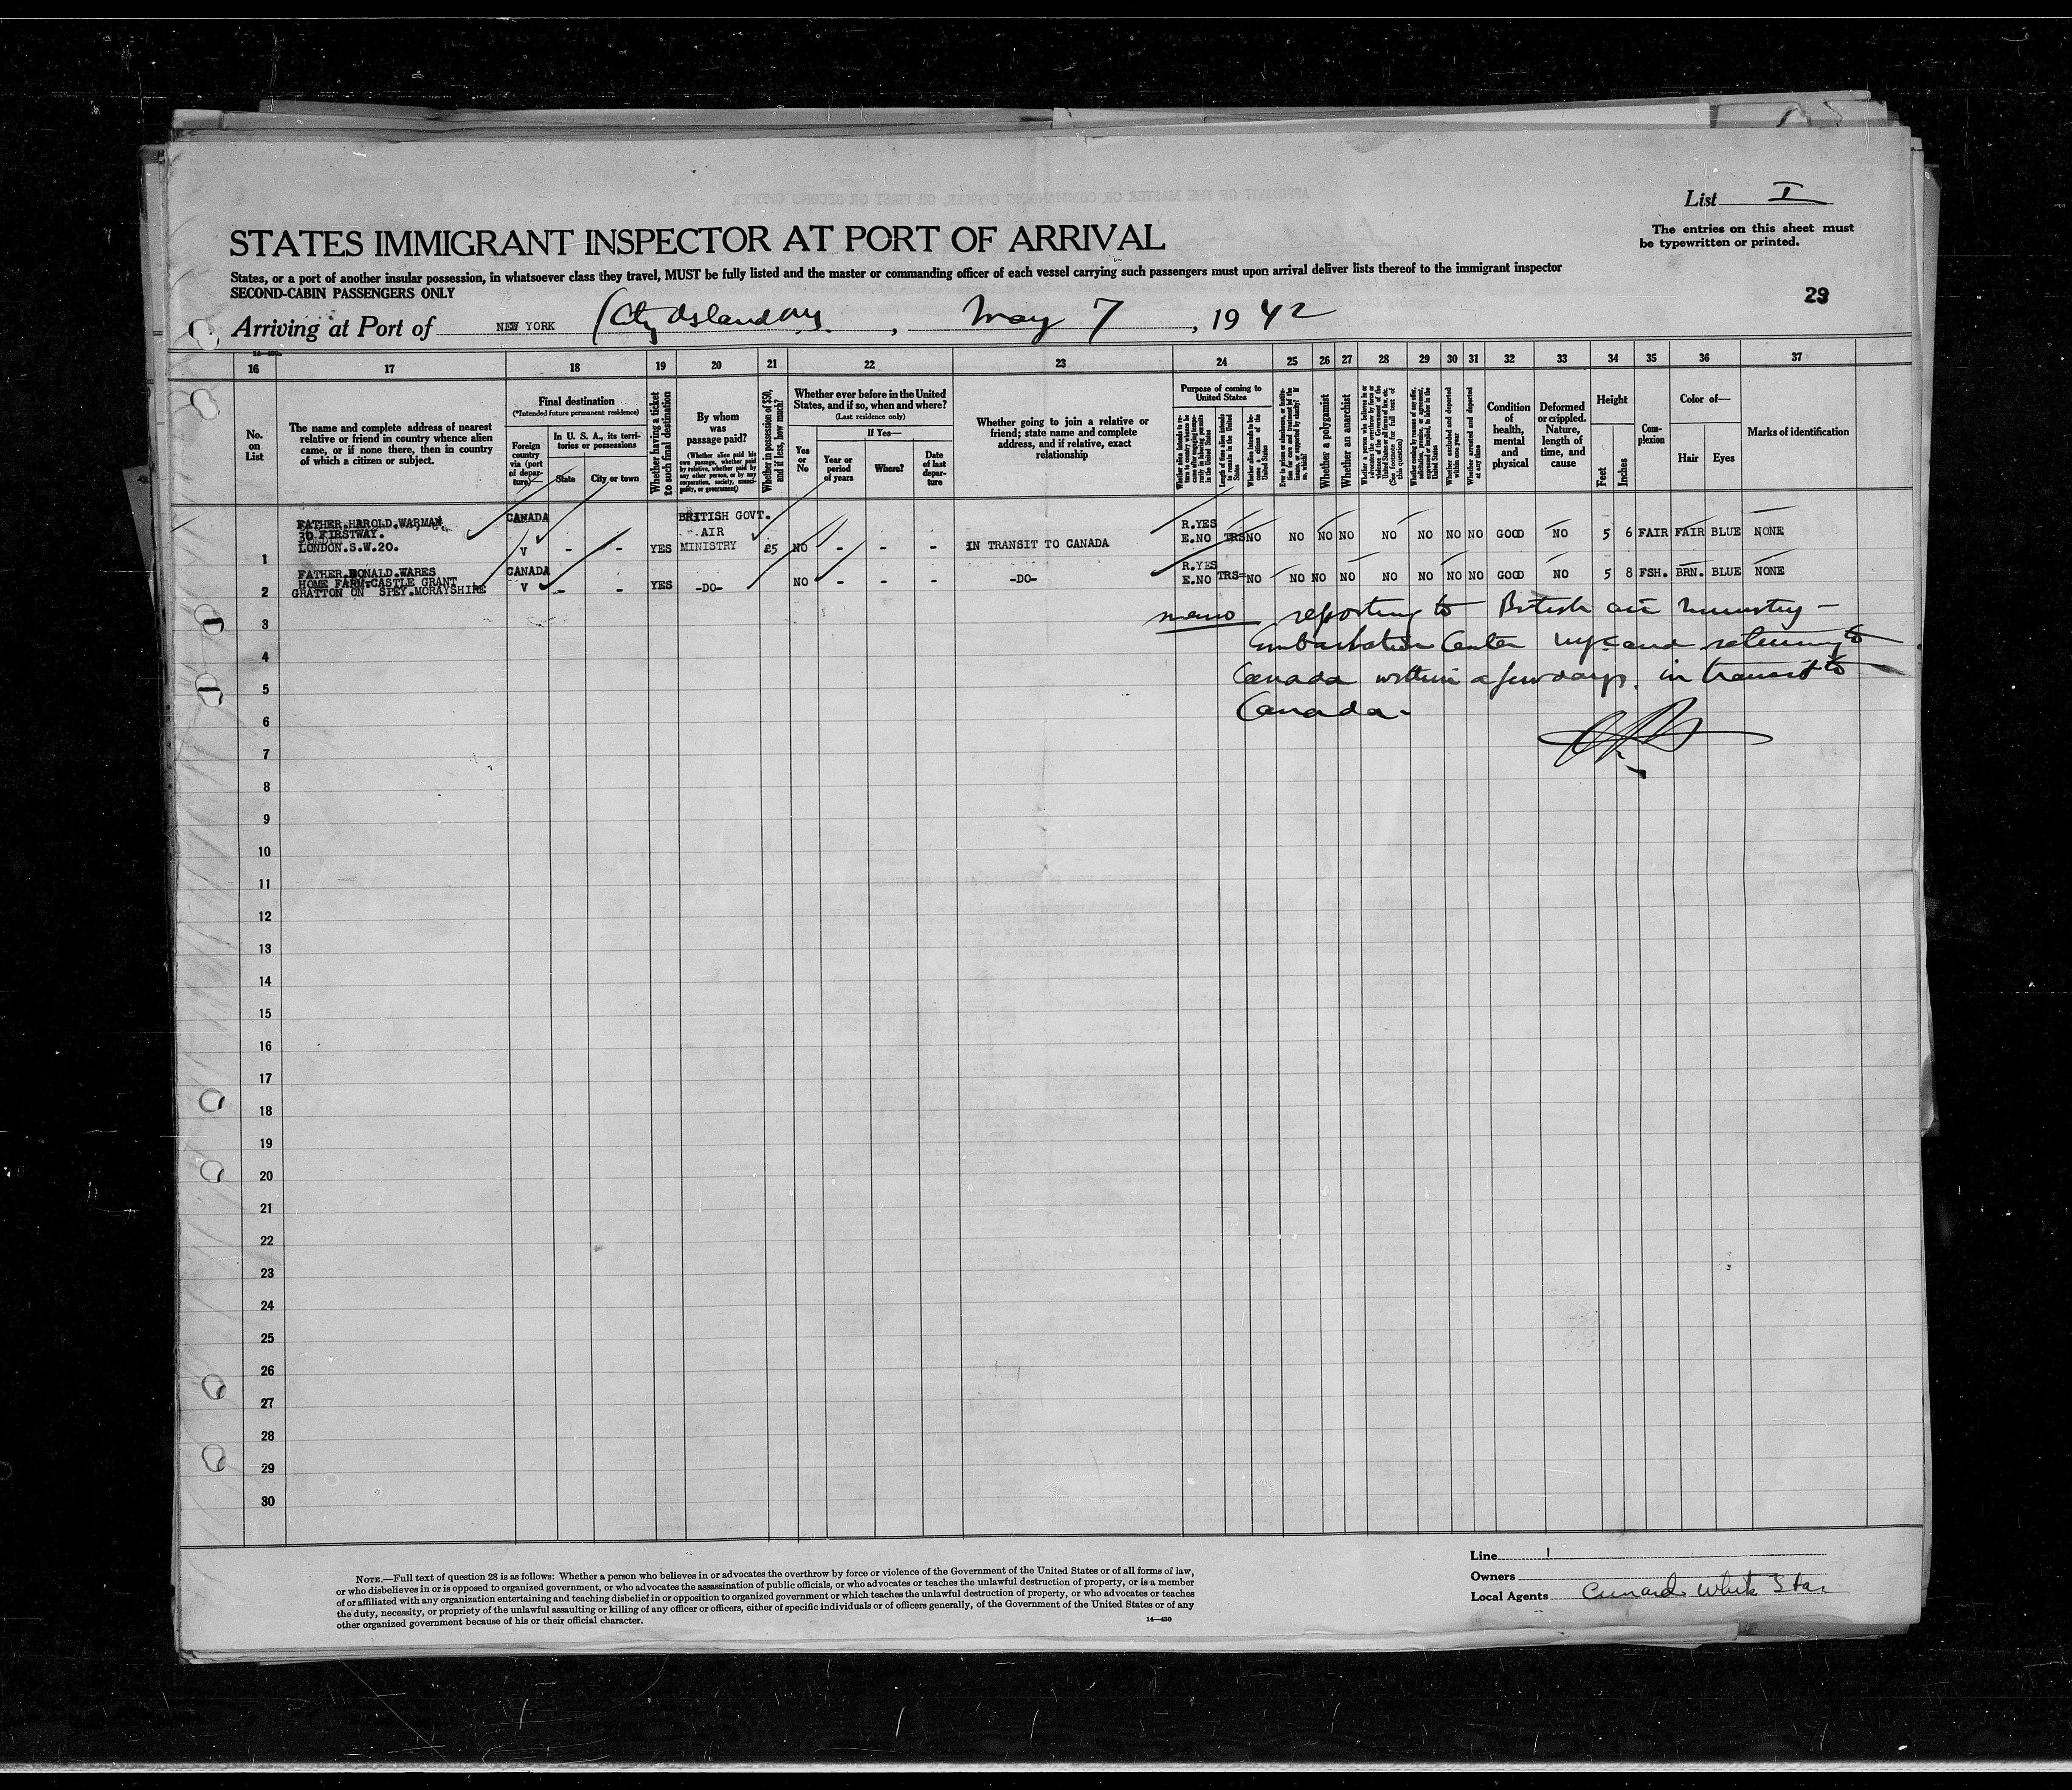 List I
The entries on this sheet must
be typewritten or printed.
STATES IMMIGRANT INSPECTOR AT PORT OF ARRIVAL
States, or a port of another insular possession, in whatsoever class they travel, MUST be fully listed and the master or commanding officer of each vessel carrying such passengers must upon arrival deliver lists thereof to the immigrant inspector
SECOND-CABIN PASSENGERS ONLY
29
Arriving at Port of NEW YORK (City Island NY. , May 7 , 1942
16 17 18 19 20 21 22 23 24 25 26 27 28 29 30 31 32 33 34 35 36 37
No.
on
List
The name and complete address of nearest
relative or friend in country whence alien
came, or if none there, then in country
of which a citizen or subject.
Final destination
(*Intended future permanent residence)
Foreign
country
via (port
of depar-
ture)
In U. S. A., its terri-
tories or possessions
State
City or town
Whether having a ticket
to such final destination
By whom
was
passage paid?
(Whether alien paid his
own passage, whether paid
by relative, whether paid by
any other person, or by any
corporation, society, munici-
pality, or government)
Whether in possession of $50,
and if less, how much?
Whether ever before in the United
States, and if so, when and where?
(Last residence only)
Yes
or
No
If Yes—
Year or
period
of years
Where?
Date
of last
depar-
ture
Whether going to join a relative or
friend; state name and complete
address, and if relative, exact
relationship
Purpose of coming to
United States
Length of time alien intends
to remain in the United
States
Whether a polygamist
Whether an anarchist
Whether excluded and deported
within one year
Whether arrested and deported
at any time
Condition
of
health,
mental
and
physical
Deformed
or crippled.
Nature,
length of
time, and
cause
Height
Feet
Inches
Com-
plexion
Color of—
Hair
Eyes
Marks of identification
FATHER.HAROLD.WARMAN
36.FIRSTWAY.
LONDON.S.W.20.
1 CANADA V - - YES BRITISH GOVT. AIR MINISTRY £5 NO - - - IN TRANSIT TO CANADA R.YES E.NO TRS NO NO NO NO NO NO NO NO GOOD NO 5 6 FAIR FAIR BLUE NONE
FATHER.DONALD.WARES
HOME FARM.CASTLE GRANT
GRATTON ON SPEY.MORAYSHIRE
2 CANADA V - - YES -DO- NO - - - -DO- R.YES E.NO TRS= NO NO NO NO NO NO NO NO GOOD NO 5 8 FSH. BRN. BLUE NONE
memo reporting to British air ministry —
Embarkation Center NYC and returning to
Canada within a few days. in transit to
Canada.
3
4
5
6
7
8
9
10
11
12
13
14
15
16
17
18
19
20
21
22
23
24
25
26
27
28
29
30
NOTE.—Full text of question 28 is as follows: Whether a person who believes in or advocates the overthrow by force or violence of the Government of the United States or of all forms of law,
or who disbelieves in or is opposed to organized government, or who advocates the assassination of public officials, or who advocates or teaches the unlawful destruction of property, or is a member
of or affiliated with any organization entertaining and teaching disbelief in or opposition to organized government or which teaches the unlawful destruction of property, or who advocates or teaches
the duty, necessity, or propriety of the unlawful assaulting or killing of any officer or officers, either of specific individuals or of officers generally, of the Government of the United States or of any
other organized government because of his or their official character.
14—430
Line 1
Owners
Local Agents Cunard White Star